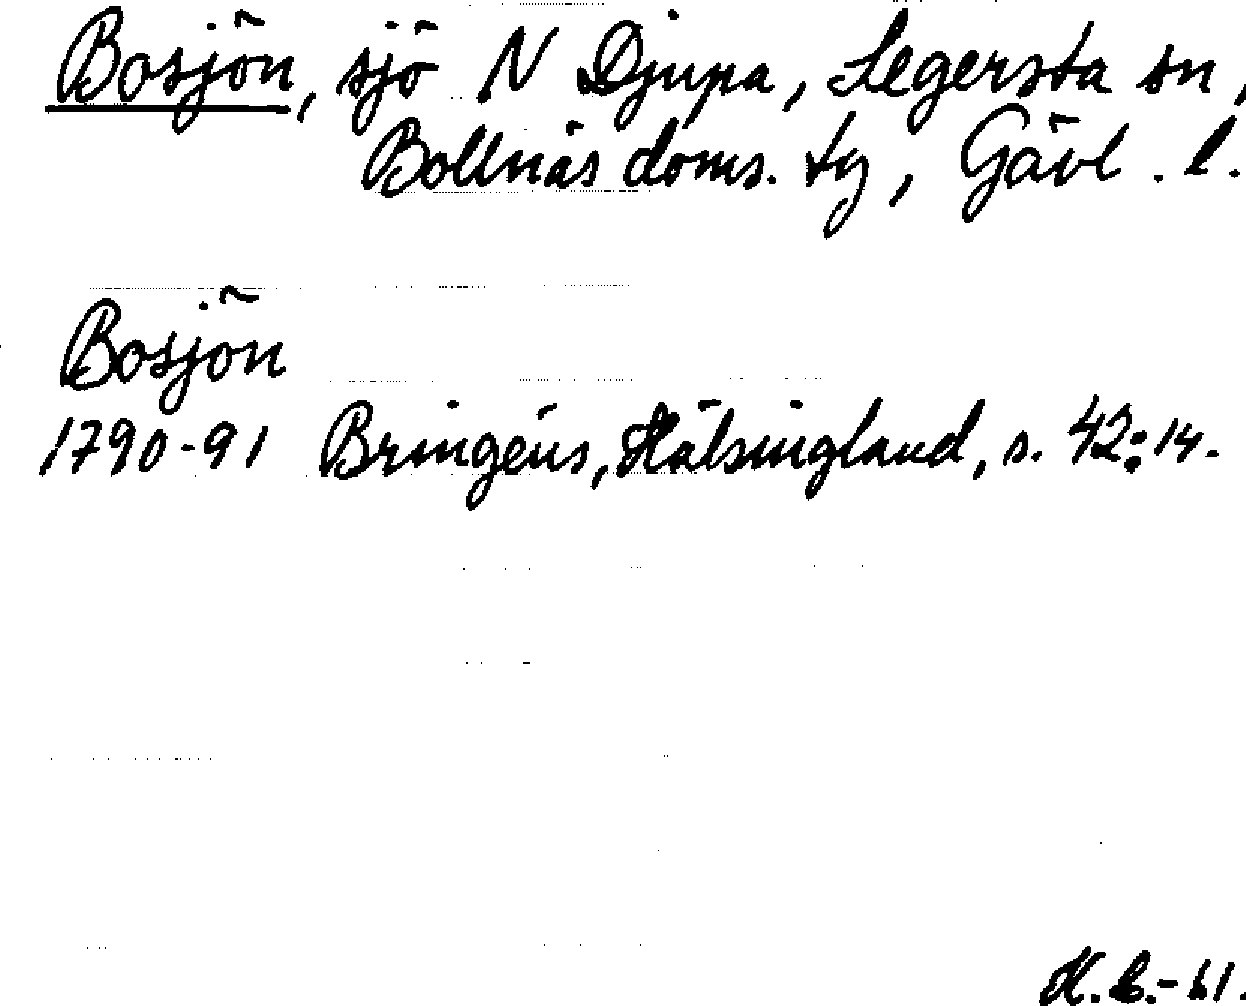 Bosjön, sjö N Djupa, Segersta sn,
Bollnäs doms. tg, Gävl. l.
Bosjön
1790-91 Bringéus, Hälsingland, s. 42:14.
H. B.-61.